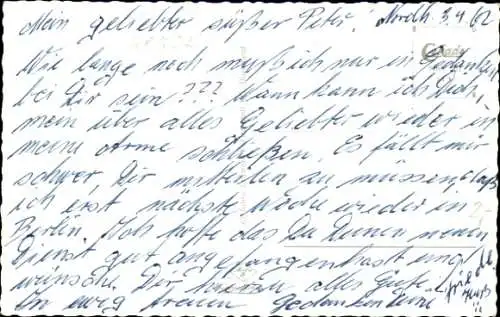 Mein geliebter süßer Peter! Nordh. 3.4.62
Wie lange noch muß ich nur in Gedanken
bei Dir sein??? Wann kann ich Dich,
mein über alles Geliebter wieder in
meine Arme schließen. Es fällt mir
schwer, Dir mitteilen zu müssen, daß
ich erst nächste Woche wieder in
Berlin. Ich hoffe das Du Deinen neuen
Dienst gut angefangen hast und
wünsche Dir alles Gute.
In ewig treuen Gedanken Deine